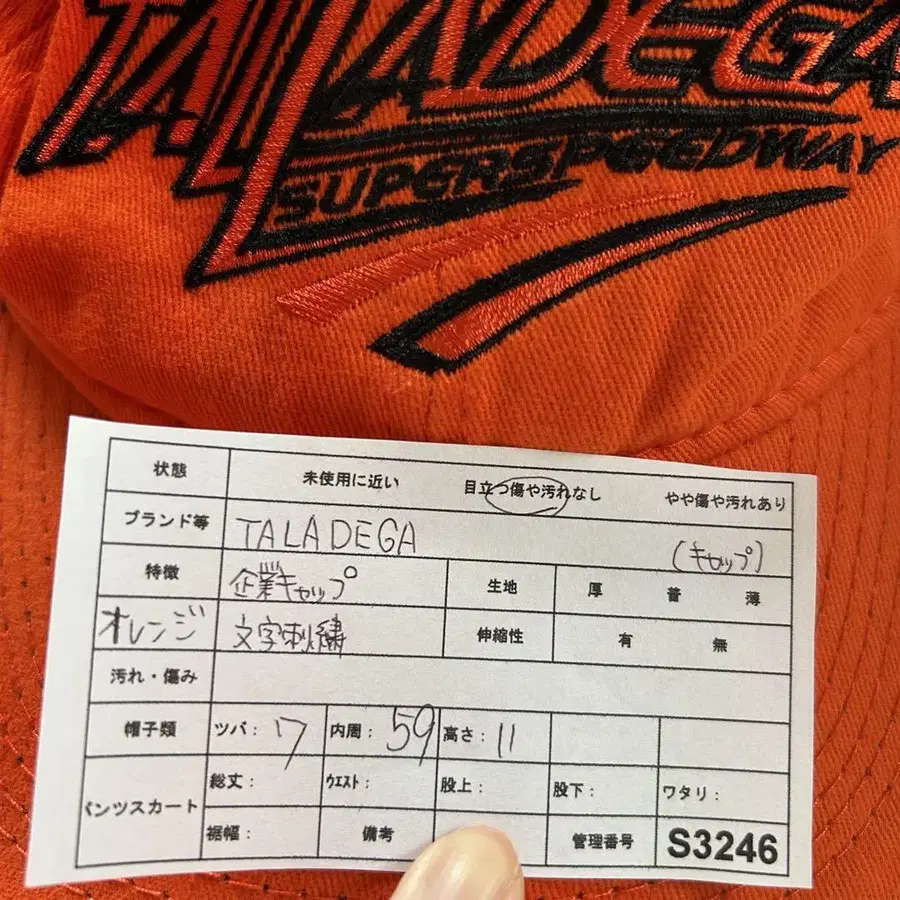 TALLADEGA
SUPERSPEEDWAY
状態 未使用に近い 目立つ傷や汚れなし やや傷や汚れあり
ブランド等 TALADEGA (キャップ)
特徴 企業キャップ 生地 厚 普 薄
オレンジ 文字刺繍 伸縮性 有 無
汚れ・傷み
帽子類 ツバ: 7 内周: 59 高さ: 11
パンツスカート 総丈: ウエスト: 股上: 股下: ワタリ:
裾幅: 備考 管理番号 S3246